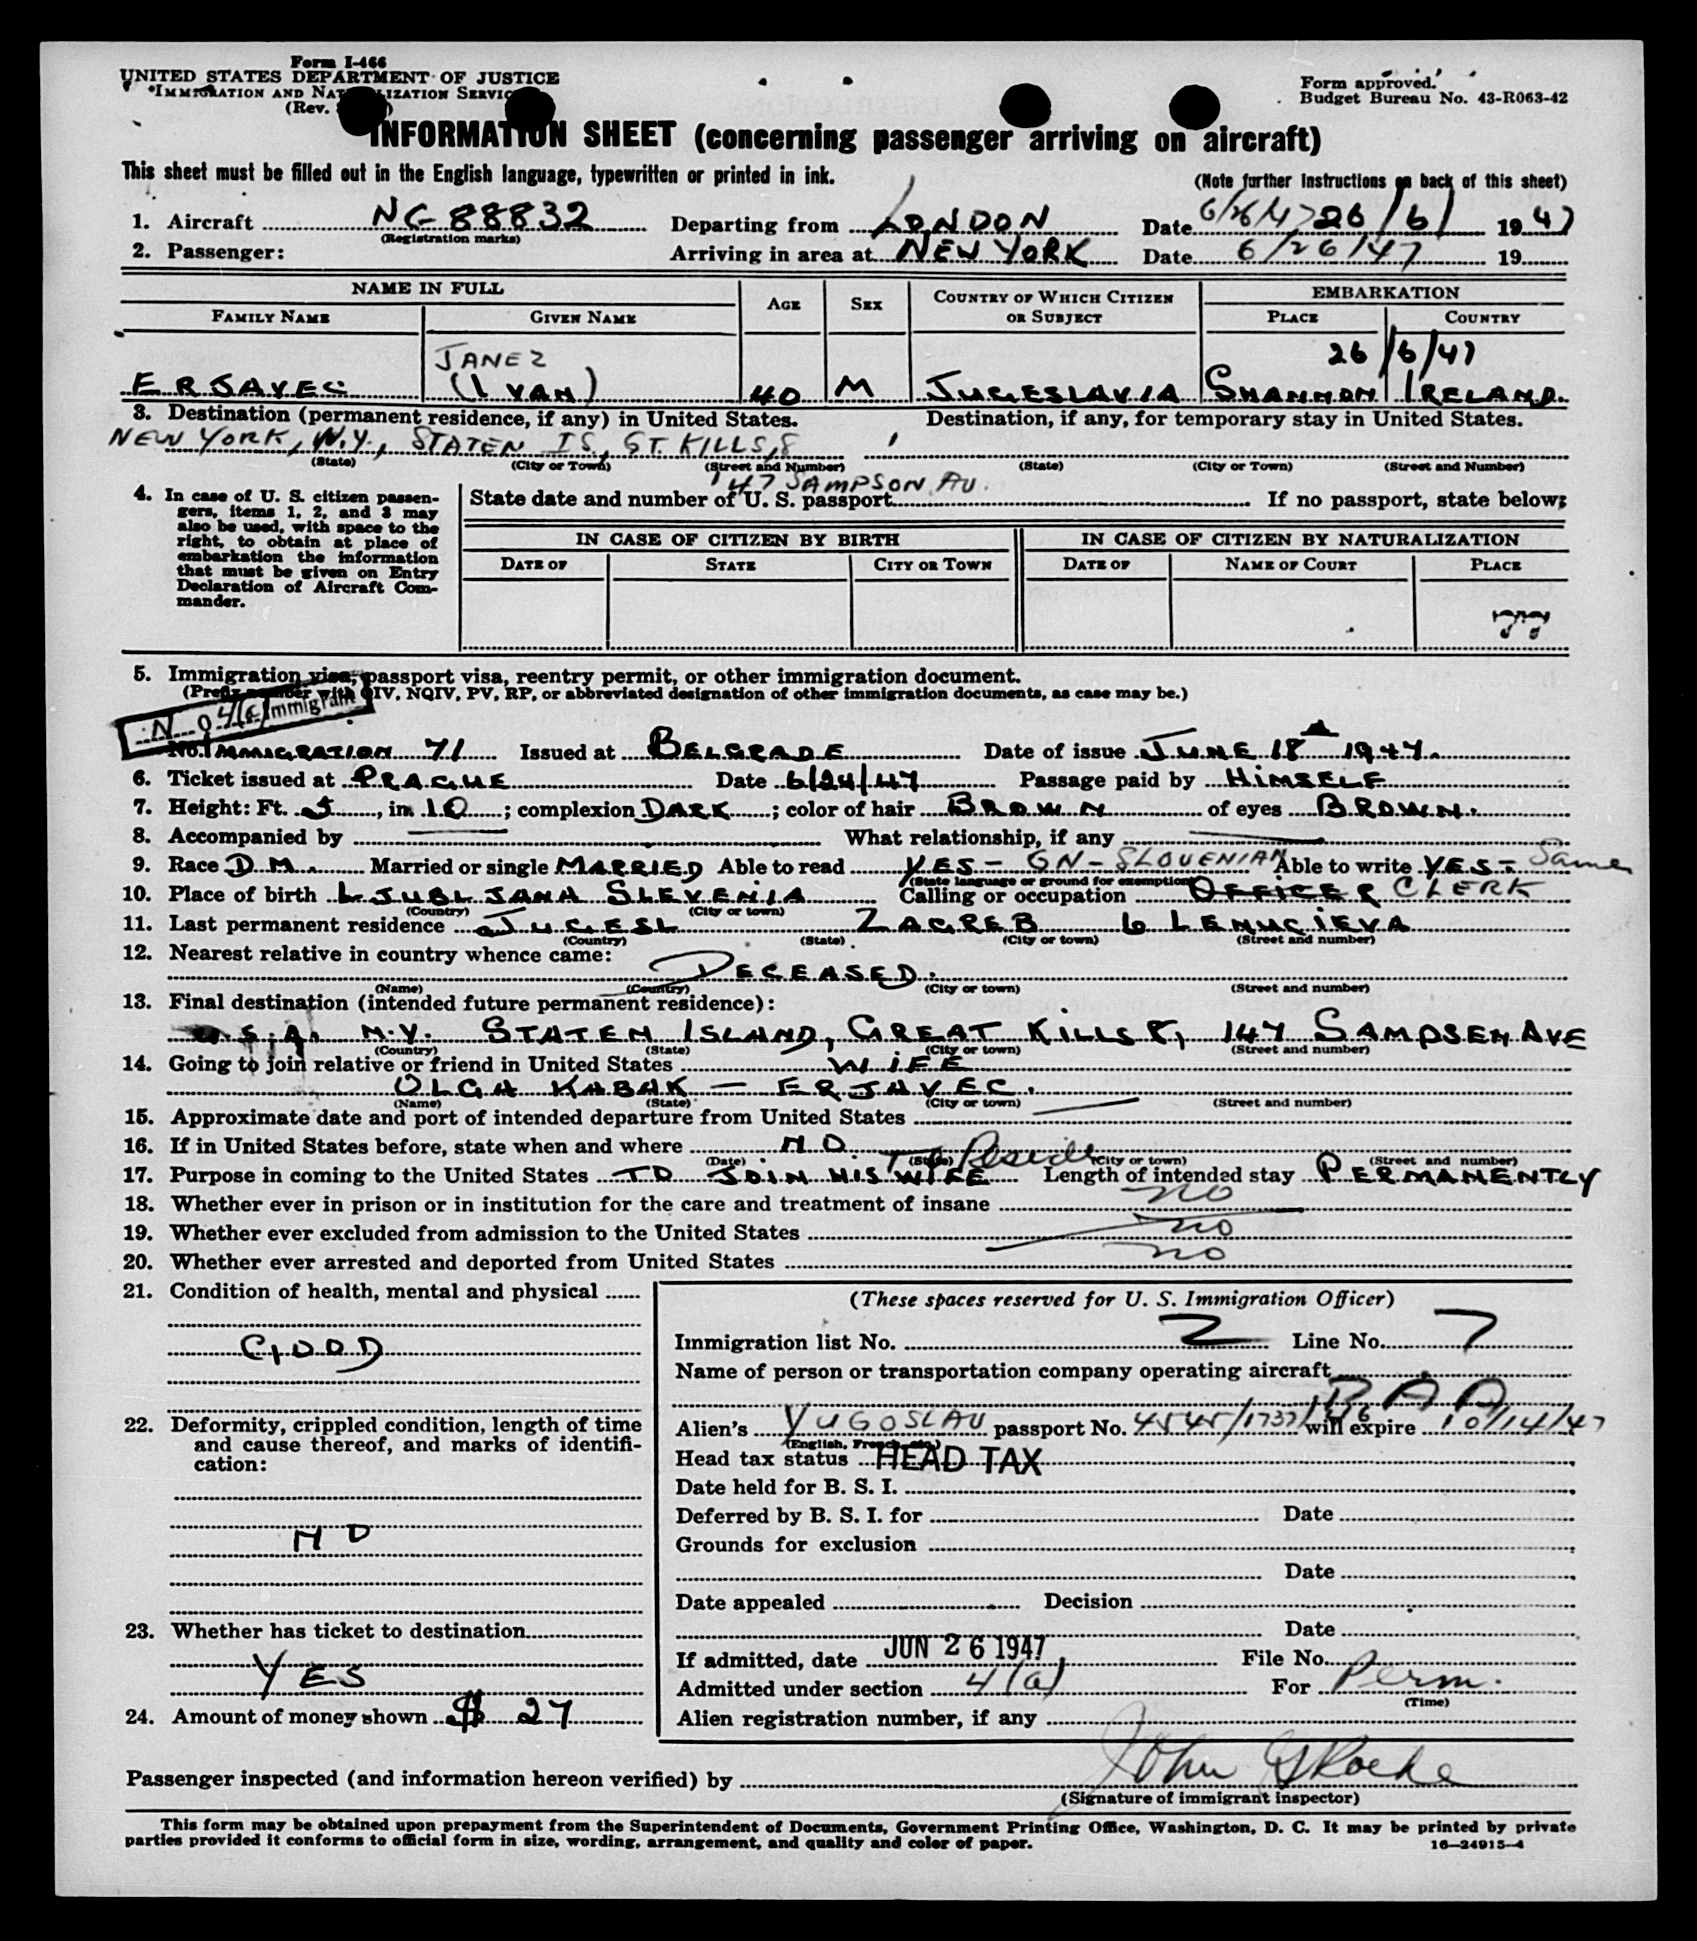 Form I-466
UNITED STATES DEPARTMENT OF JUSTICE
IMMIGRATION AND NATURALIZATION SERVICE
(Rev.
Form approved.
Budget Bureau No. 43-R063-42
INFORMATION SHEET (concerning passenger arriving on aircraft)
This sheet must be filled out in the English language, typewritten or printed in ink.
(Note further instructions on back of this sheet)
1. Aircraft NC 88832 Departing from LONDON Date 6/26/47 26/6/ 1947
(Registration marks)
2. Passenger: Arriving in area at NEW YORK Date 6/26/47 19
NAME IN FULL AGE SEX COUNTRY OF WHICH CITIZEN OR SUBJECT EMBARKATION
FAMILY NAME GIVEN NAME PLACE COUNTRY
JANEZ 26/6/47
ERJAVEC (IVAN) 40 M JUGESLAVIA SHANNON IRELAND.
3. Destination (permanent residence, if any) in United States. Destination, if any, for temporary stay in United States.
NEW YORK, N.Y., STATEN IS., GT. KILLS, 8
(State) (City or Town) (Street and Number) (State) (City or Town) (Street and Number)
147 SAMPSON AV.
4. In case of U. S. citizen passengers, items 1, 2, and 3 may also be used, with space to the right, to obtain at place of embarkation the information that must be given on Entry Declaration of Aircraft Commander.
State date and number of U. S. passport If no passport, state below:
IN CASE OF CITIZEN BY BIRTH IN CASE OF CITIZEN BY NATURALIZATION
DATE OF STATE CITY OR TOWN DATE OF NAME OF COURT PLACE
5. Immigration visa, passport visa, reentry permit, or other immigration document.
(Prefix number with QIV, NQIV, PV, RP, or abbreviated designation of other immigration documents, as case may be.)
4(a) Immigrant
No. IMMIGRATION 71 Issued at BELGRADE Date of issue JUNE 18 1947.
6. Ticket issued at PRAGUE Date 6/24/47 Passage paid by HIMSELF
7. Height: Ft. 5, in. 10; complexion DARK; color of hair BROWN of eyes BROWN.
8. Accompanied by — What relationship, if any —
9. Race D.M. Married or single MARRIED Able to read YES - GN - SLOVENIAN Able to write YES - Same
(State language or ground for exemption)
10. Place of birth LJUBLJANA SLEVENIA Calling or occupation OFFICER CLERK
(Country) (City or town)
11. Last permanent residence JUGESL ZAGREB 6 LENUCIEVA
(Country) (State) (City or town) (Street and number)
12. Nearest relative in country whence came:
DECEASED.
(Name) (Country) (City or town) (Street and number)
13. Final destination (intended future permanent residence):
U.S.A. N.Y. STATEN ISLAND, GREAT KILLS 8, 147 SAMPSEN AVE
(Country) (State) (City or town) (Street and number)
14. Going to join relative or friend in United States WIFE
OLGA KABAK — ERJAVEC.
(Name) (State) (City or town) (Street and number)
15. Approximate date and port of intended departure from United States —
16. If in United States before, state when and where NO.
(Date) (State) (City or town) (Street and number)
To Reside
17. Purpose in coming to the United States TO JOIN HIS WIFE Length of intended stay PERMANENTLY
18. Whether ever in prison or in institution for the care and treatment of insane no
19. Whether ever excluded from admission to the United States no
20. Whether ever arrested and deported from United States no
21. Condition of health, mental and physical
GOOD
22. Deformity, crippled condition, length of time and cause thereof, and marks of identification:
NO
23. Whether has ticket to destination
YES
24. Amount of money shown $ 27
(These spaces reserved for U. S. Immigration Officer)
Immigration list No. 2 Line No. 7
Name of person or transportation company operating aircraft
PAA
Alien's YUGOSLAV passport No. 4545/1737/46 will expire 10/14/47
(English, French, etc.)
Head tax status HEAD TAX
Date held for B. S. I.
Deferred by B. S. I. for Date
Grounds for exclusion
Date
Date appealed Decision
Date
If admitted, date JUN 26 1947 File No.
Admitted under section 4(a) For Perm.
(Time)
Alien registration number, if any
Passenger inspected (and information hereon verified) by John
(Signature of immigrant inspector)
This form may be obtained upon prepayment from the Superintendent of Documents, Government Printing Office, Washington, D. C. It may be printed by private
parties provided it conforms to official form in size, wording, arrangement, and quality and color of paper.
16—24915-4